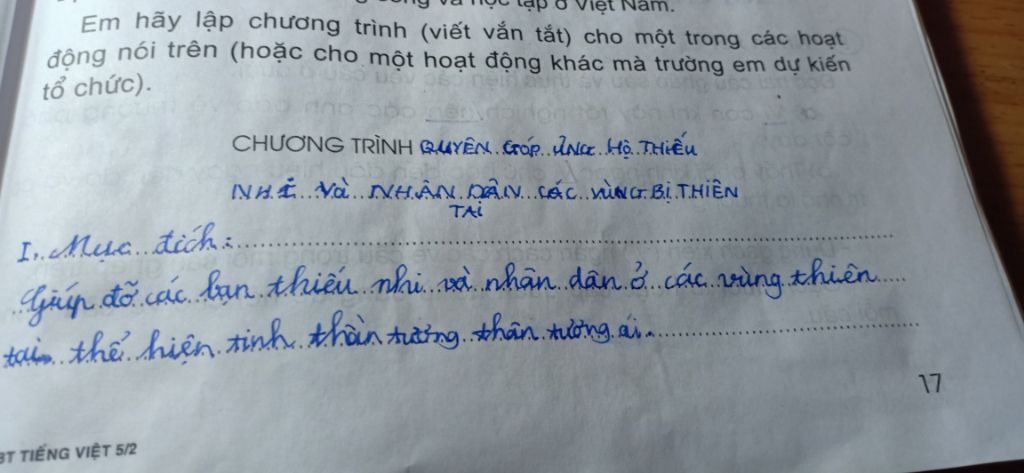 học tập ở Việt Nam.
Em hãy lập chương trình (viết vắn tắt) cho một trong các hoạt
động nói trên (hoặc cho một hoạt động khác mà trường em dự kiến
tổ chức).
CHƯƠNG TRÌNH QUYÊN GÓP ỦNG HỘ THIẾU
NHI VÀ NHÂN DÂN CÁC VÙNG BỊ THIÊN
TAI
I. Mục đích:
Giúp đỡ các bạn thiếu nhi và nhân dân ở các vùng thiên
tai thể hiện tinh thần tương thân tương ái.
17
BT TIẾNG VIỆT 5/2